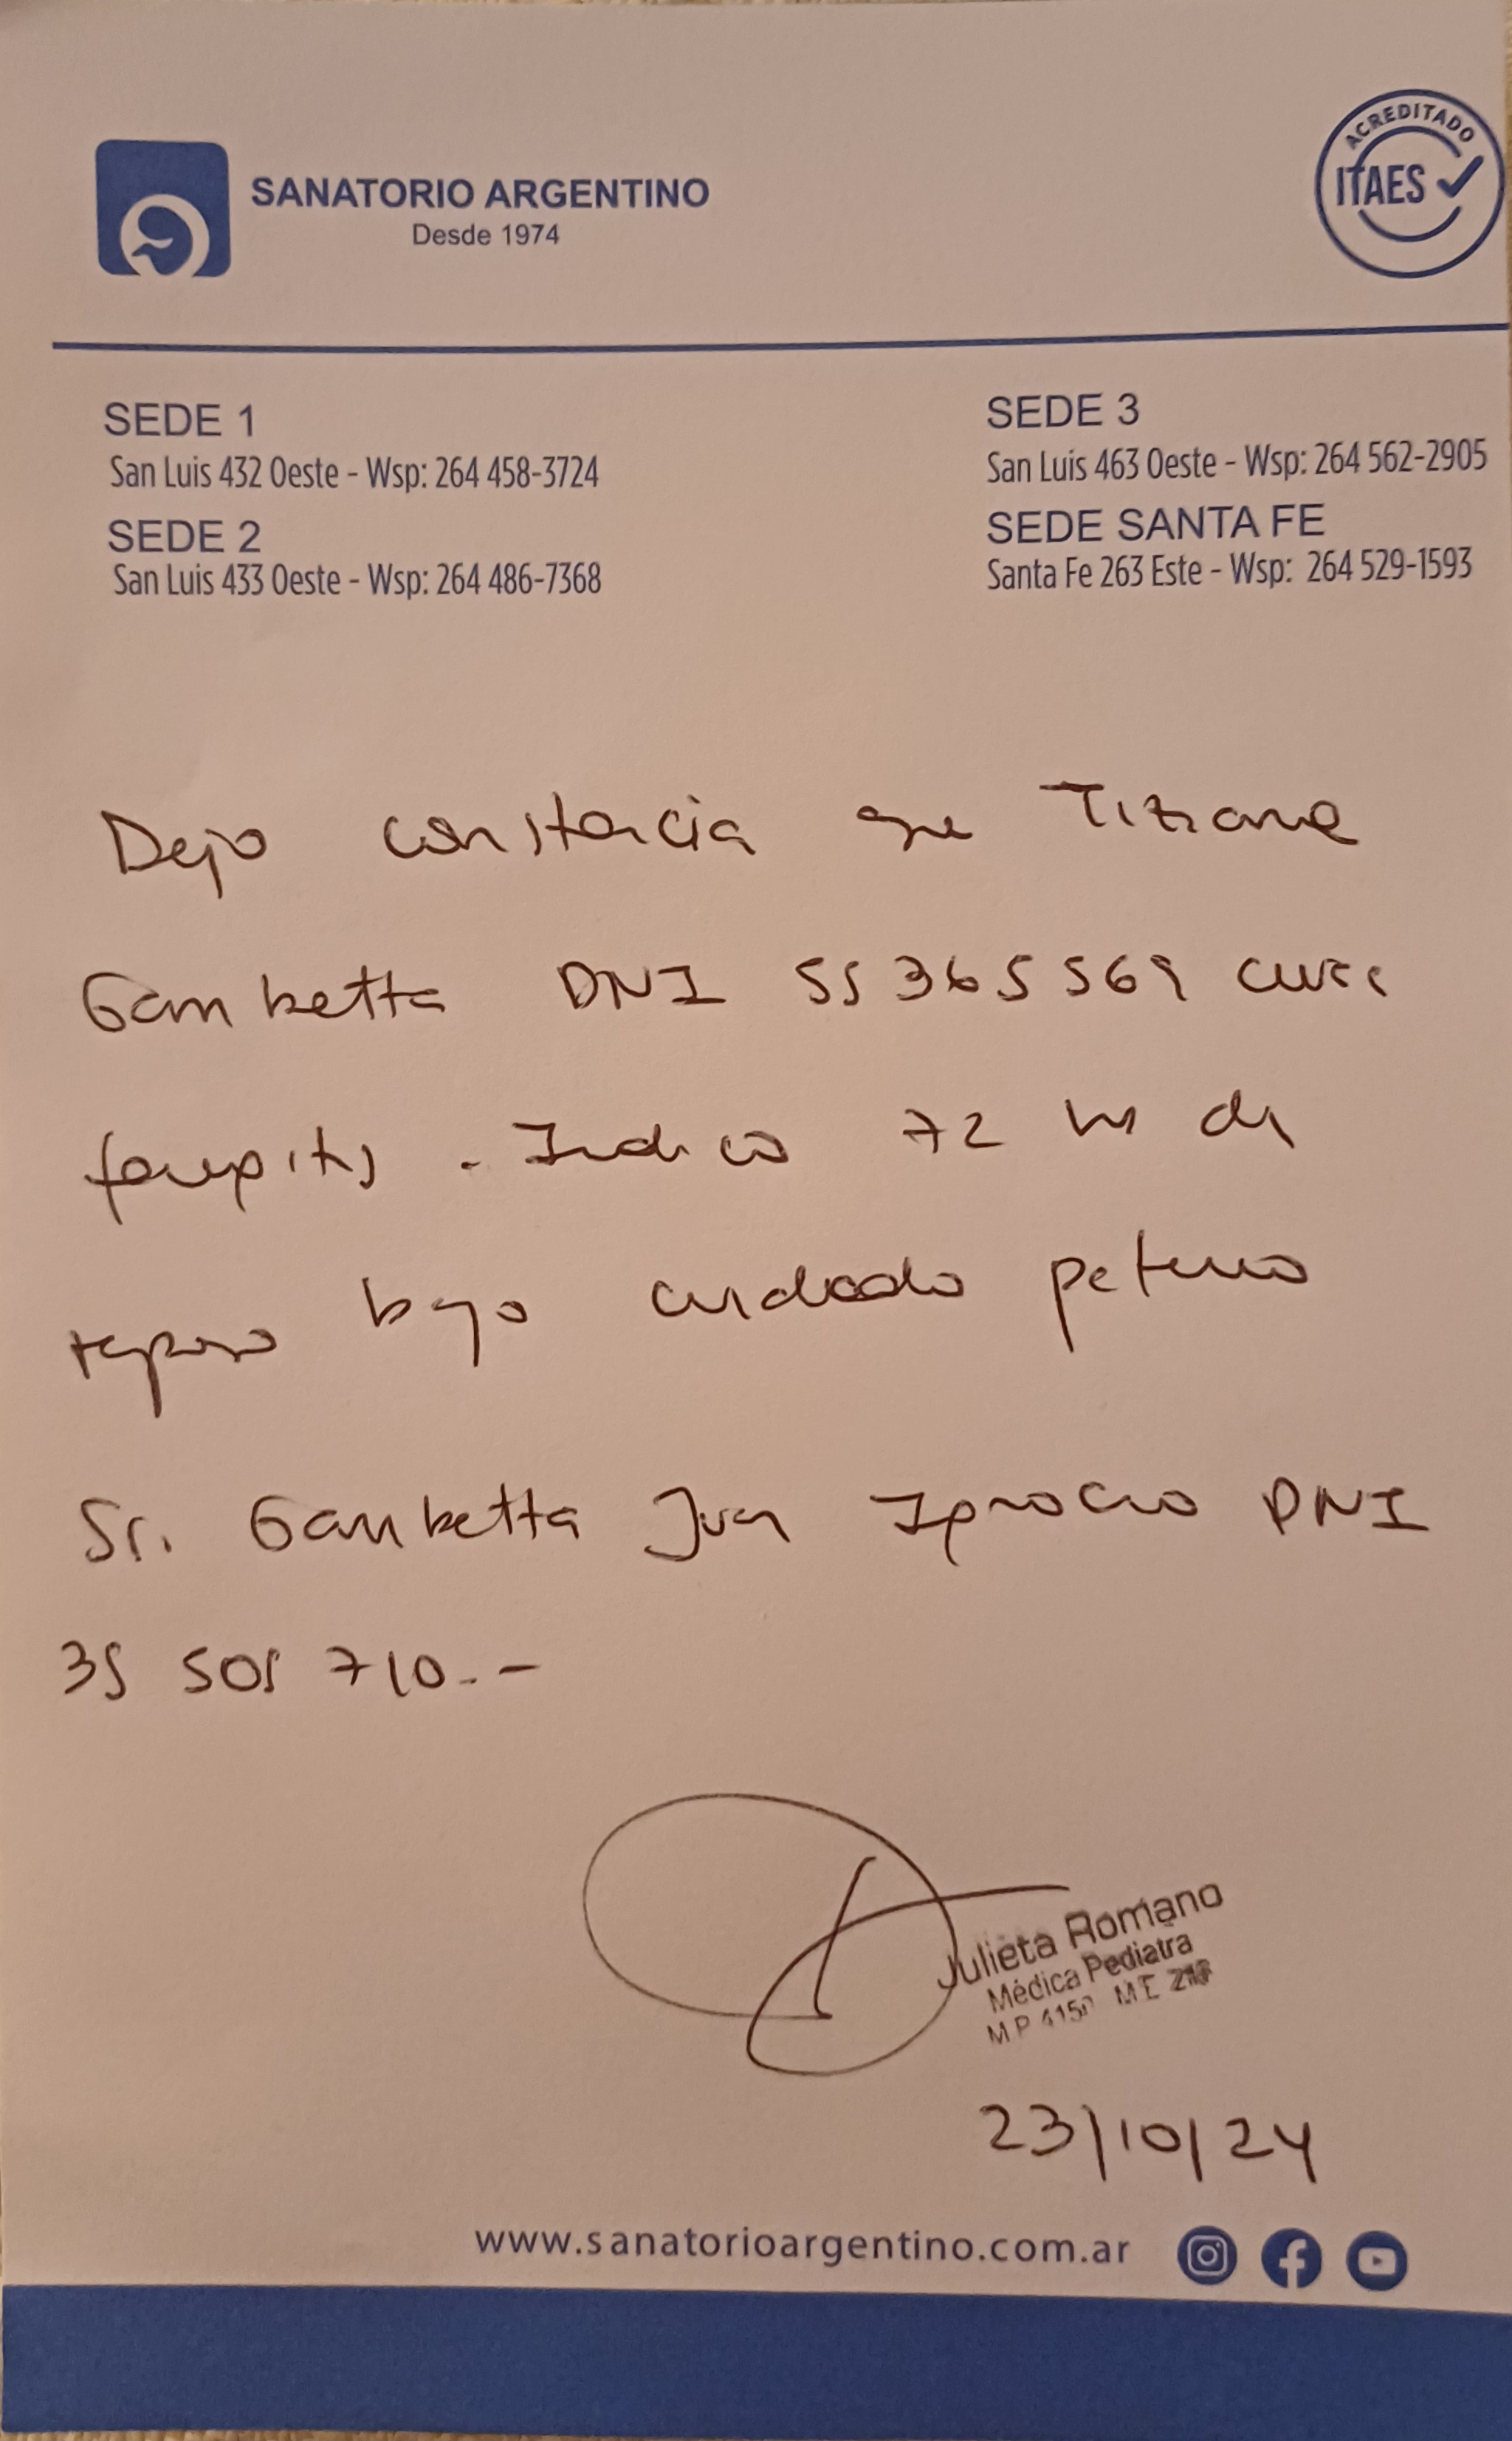 SANATORIO ARGENTINO
Desde 1974
ACREDITADO
ITAES
SEDE 1
San Luis 432 Oeste - Wsp: 264 458-3724
SEDE 2
San Luis 433 Oeste - Wsp: 264 486-7368
SEDE 3
San Luis 463 Oeste - Wsp: 264 562-2905
SEDE SANTA FE
Santa Fe 263 Este - Wsp: 264 529-1593
Dejo constancia que Tiziana
Gambetta DNI 55 365 569 cursa
faringitis . Indico 72 hs de
reposo bajo cuidado paterno
Sr. Gambetta Juan Ignacio DNI
35 505 710.-
Julieta Romano
Médica Pediatra
M P M E
23/10/24
www.sanatorioargentino.com.ar